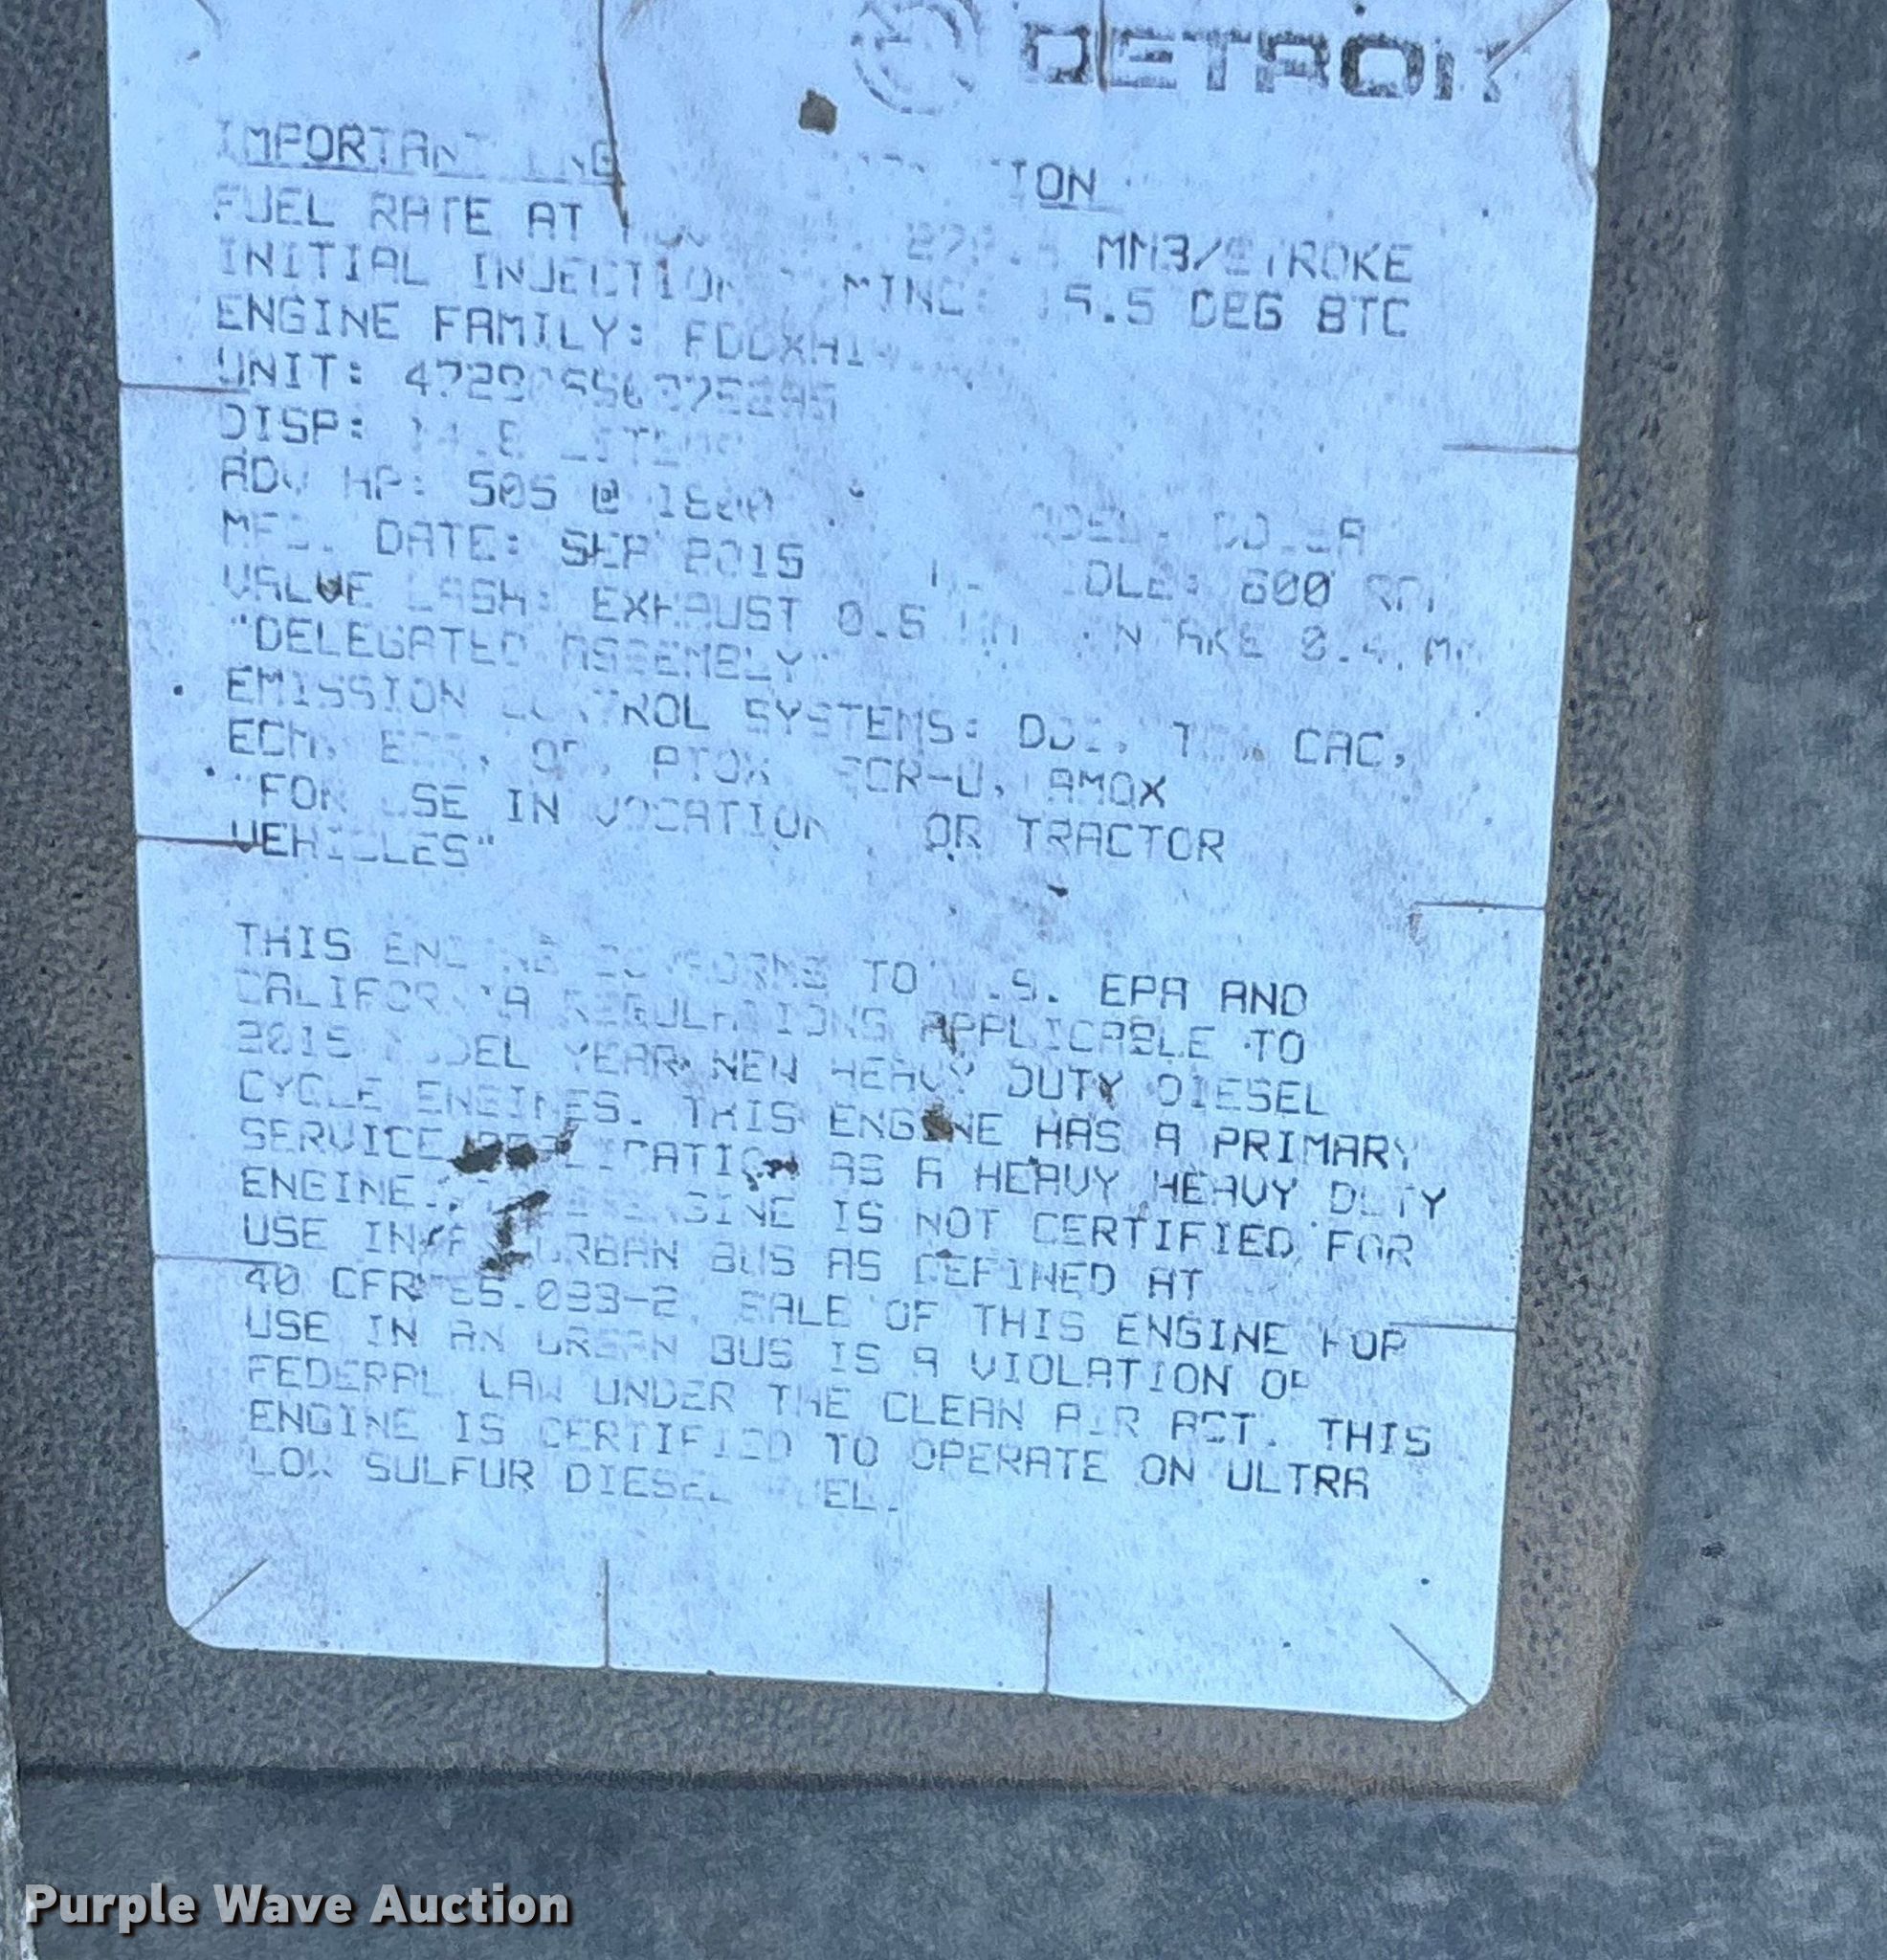 DETROIT
IMPORTANT
FUEL RATE AT MM3/STROKE
INITIAL INJECTION 5.5 DEG BTC
ENGINE FAMILY:
UNIT:
DISP: LITERS
ADV HP: 505 @ 1800
MFG. DATE: SEP 2015 IDLE: 600 RPM
VALVE LASH: EXHAUST INTAKE
"DELEGATED ASSEMBLY"
EMISSION CONTROL SYSTEMS: CAC,
ECM, PTOX, SCR-U, AMOX
"FOR USE IN VOCATIONAL OR TRACTOR
VEHICLES"
THIS ENGINE CONFORMS TO U.S. EPA AND
CALIFORNIA REGULATIONS APPLICABLE TO
2015 MODEL YEAR NEW HEAVY DUTY DIESEL
CYCLE ENGINES. THIS ENGINE HAS A PRIMARY
SERVICE APPLICATION AS A HEAVY HEAVY DUTY
ENGINE. ENGINE IS NOT CERTIFIED FOR
USE IN URBAN BUS AS DEFINED AT
40 CFR SALE OF THIS ENGINE FOR
USE IN AN URBAN BUS IS A VIOLATION OF
FEDERAL LAW UNDER THE CLEAN AIR ACT. THIS
ENGINE IS CERTIFIED TO OPERATE ON ULTRA
LOW SULFUR DIESEL FUEL.
Purple Wave Auction